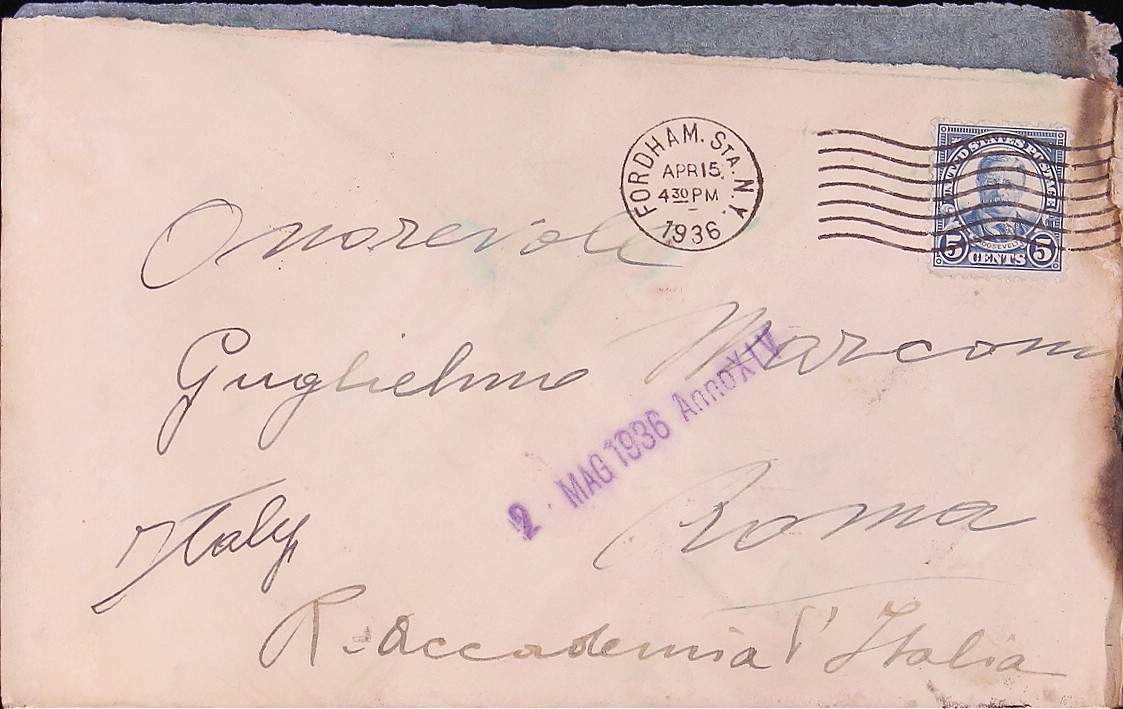 FORDHAM. STA. N.Y.
APR 15
4 30 PM
1936
UNITED STATES POSTAGE
ROOSEVELT
5 CENTS 5
Onorevole
Guglielmo Marconi
2 · MAG 1936 Anno XIV
Roma
Italy
R. Accademia d' Italia